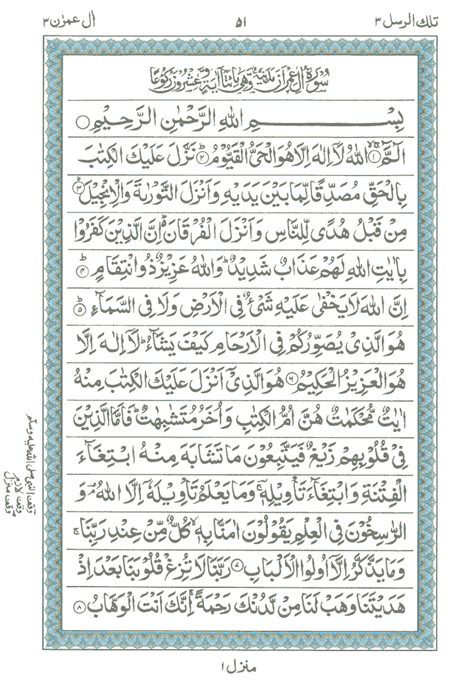 تلك الرسل ٣
٥١
ال عمرٰن ٣
سُوْرَةُ اٰلِ عِمْرٰنَ مَدَنِيَّةٌ وَّهِيَ مِائَتَا اٰيَةٍ وَّعِشْرُوْنَ رُكُوْعًا
بِسْمِ اللهِ الرَّحْمٰنِ الرَّحِيْمِ
الٓمّٓ ۙ١ اللهُ لَاۤ اِلٰهَ اِلَّا هُوَ الْحَيُّ الْقَيُّوْمُ ٢ؕ نَزَّلَ عَلَيْكَ الْكِتٰبَ
بِالْحَقِّ مُصَدِّقًا لِّمَا بَيْنَ يَدَيْهِ وَاَنْزَلَ التَّوْرٰىةَ وَالْاِنْجِيْلَ ٣ۙ
مِنْ قَبْلُ هُدًى لِّلنَّاسِ وَاَنْزَلَ الْفُرْقَانَ ؕ اِنَّ الَّذِيْنَ كَفَرُوْا
بِاٰيٰتِ اللهِ لَهُمْ عَذَابٌ شَدِيْدٌ ؕ وَاللهُ عَزِيْزٌ ذُو انْتِقَامٍ ٤
اِنَّ اللهَ لَا يَخْفٰى عَلَيْهِ شَيْءٌ فِي الْاَرْضِ وَلَا فِي السَّمَآءِ ٥ؕ
هُوَ الَّذِيْ يُصَوِّرُكُمْ فِي الْاَرْحَامِ كَيْفَ يَشَآءُ ؕ لَاۤ اِلٰهَ اِلَّا
هُوَ الْعَزِيْزُ الْحَكِيْمُ ٦ هُوَ الَّذِيْۤ اَنْزَلَ عَلَيْكَ الْكِتٰبَ مِنْهُ
اٰيٰتٌ مُّحْكَمٰتٌ هُنَّ اُمُّ الْكِتٰبِ وَاُخَرُ مُتَشٰبِهٰتٌ ؕ فَاَمَّا الَّذِيْنَ
فِيْ قُلُوْبِهِمْ زَيْغٌ فَيَتَّبِعُوْنَ مَا تَشَابَهَ مِنْهُ ابْتِغَآءَ
الْفِتْنَةِ وَابْتِغَآءَ تَاْوِيْلِهٖ ۚ وَمَا يَعْلَمُ تَاْوِيْلَهٗۤ اِلَّا اللهُ ۘ وَ
الرّٰسِخُوْنَ فِي الْعِلْمِ يَقُوْلُوْنَ اٰمَنَّا بِهٖ ۙ كُلٌّ مِّنْ عِنْدِ رَبِّنَا ۚ
وَمَا يَذَّكَّرُ اِلَّاۤ اُولُوا الْاَلْبَابِ ٧ رَبَّنَا لَا تُزِغْ قُلُوْبَنَا بَعْدَ اِذْ
هَدَيْتَنَا وَهَبْ لَنَا مِنْ لَّدُنْكَ رَحْمَةً ۚ اِنَّكَ اَنْتَ الْوَهَّابُ ٨
وقف النبي صلى الله عليه وسلم
وقف لازم
وقف منزل
منزل ١